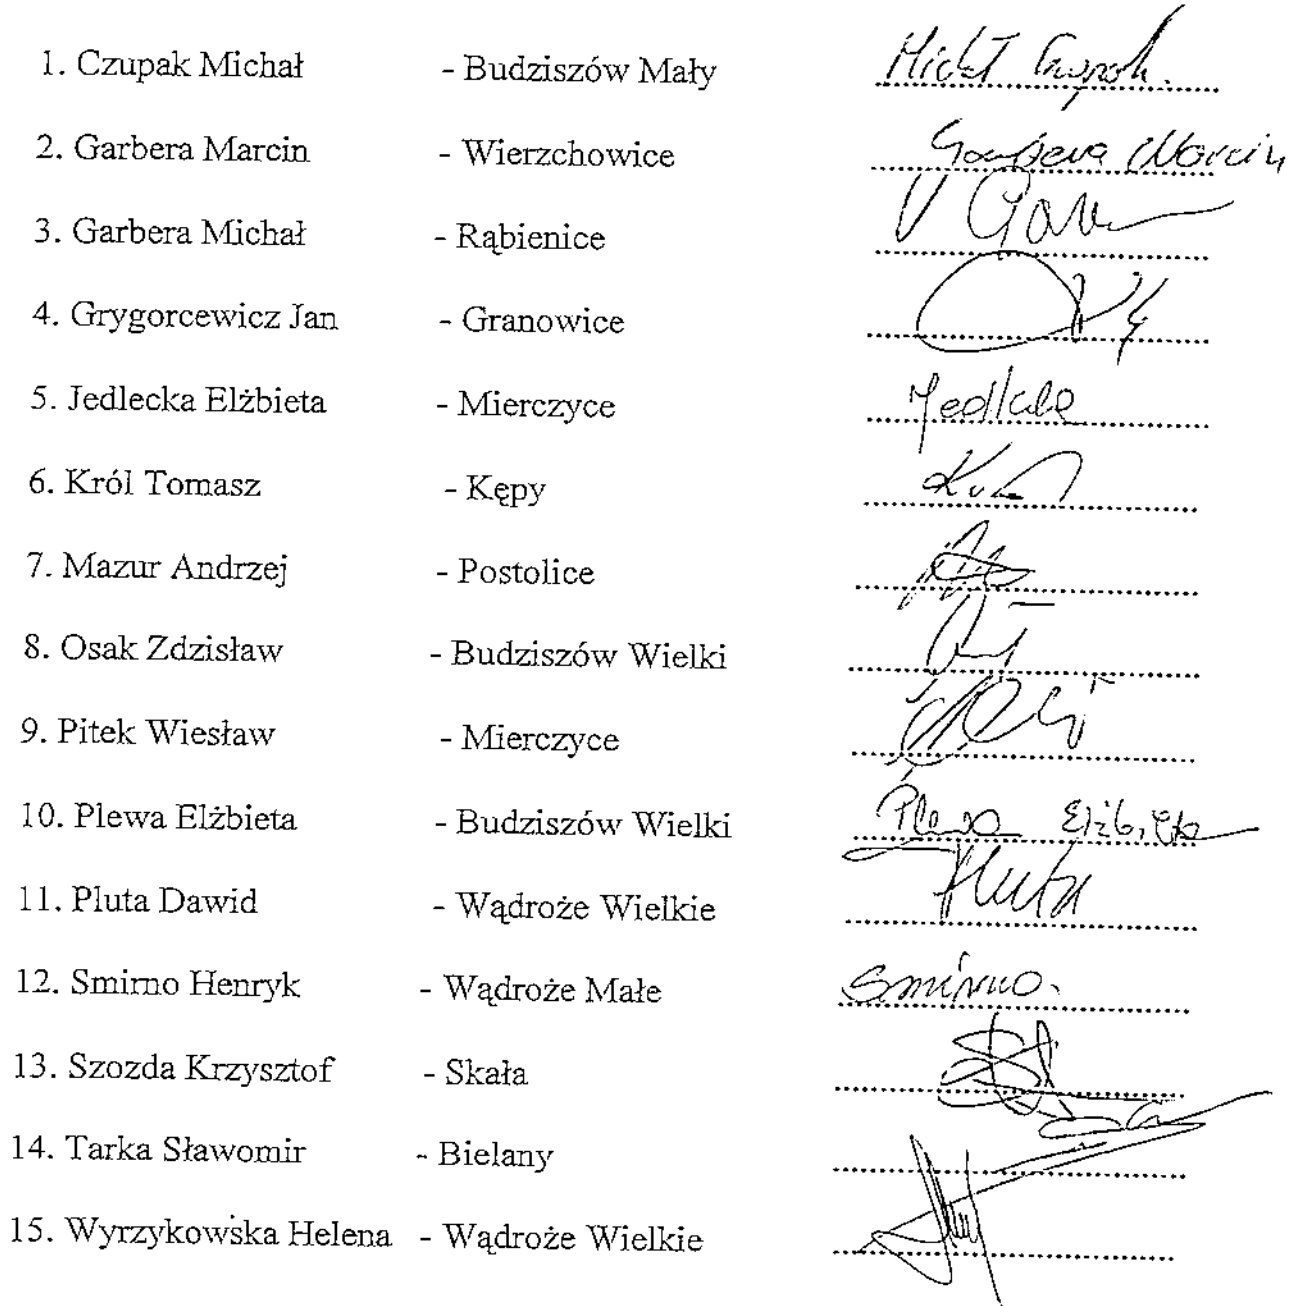 1. Czupak Michał - Budziszów Mały Michał Czupak
2. Garbera Marcin - Wierzchowice Garbera Marcin
3. Garbera Michał - Rąbienice
4. Grygorcewicz Jan - Granowice
5. Jedlecka Elżbieta - Mierczyce
6. Król Tomasz - Kępy
7. Mazur Andrzej - Postolice
8. Osak Zdzisław - Budziszów Wielki
9. Pitek Wiesław - Mierczyce
10. Plewa Elżbieta - Budziszów Wielki Plewa Elżbieta
11. Pluta Dawid - Wądroże Wielkie Pluta
12. Smirno Henryk - Wądroże Małe Smirno
13. Szozda Krzysztof - Skała
14. Tarka Sławomir - Bielany
15. Wyrzykowska Helena - Wądroże Wielkie